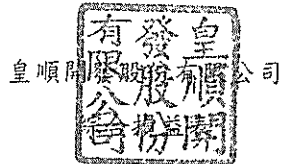 皇順開發股份有限公司
皇順開
發股份
有限公司